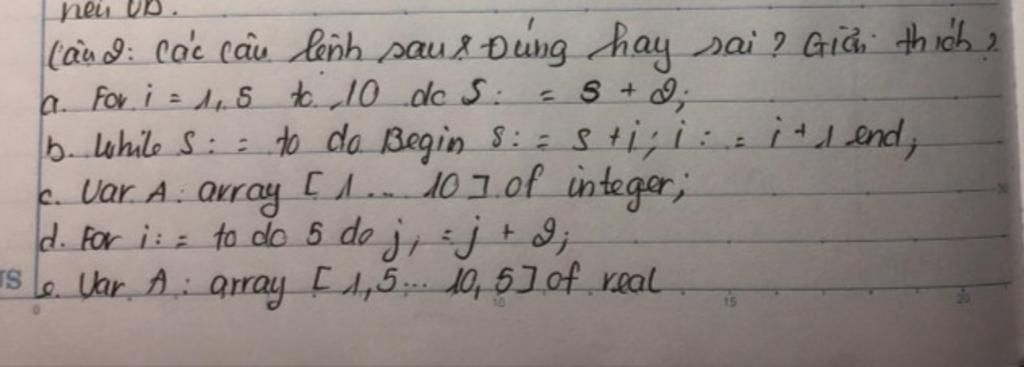 nếu
Câu 2: Các câu lệnh sau Đúng hay sai? Giải thích?
a. For i = 1,5 to 10 do S: = S + 2;
b. While S: = to do Begin S: = S + i; i: = i + 1 end;
c. Var A: array [1... 10] of integer;
d. For i: = to do 5 do j, = j + 2;
e. Var A: array [1,5... 10,5] of real
0 10 15 20